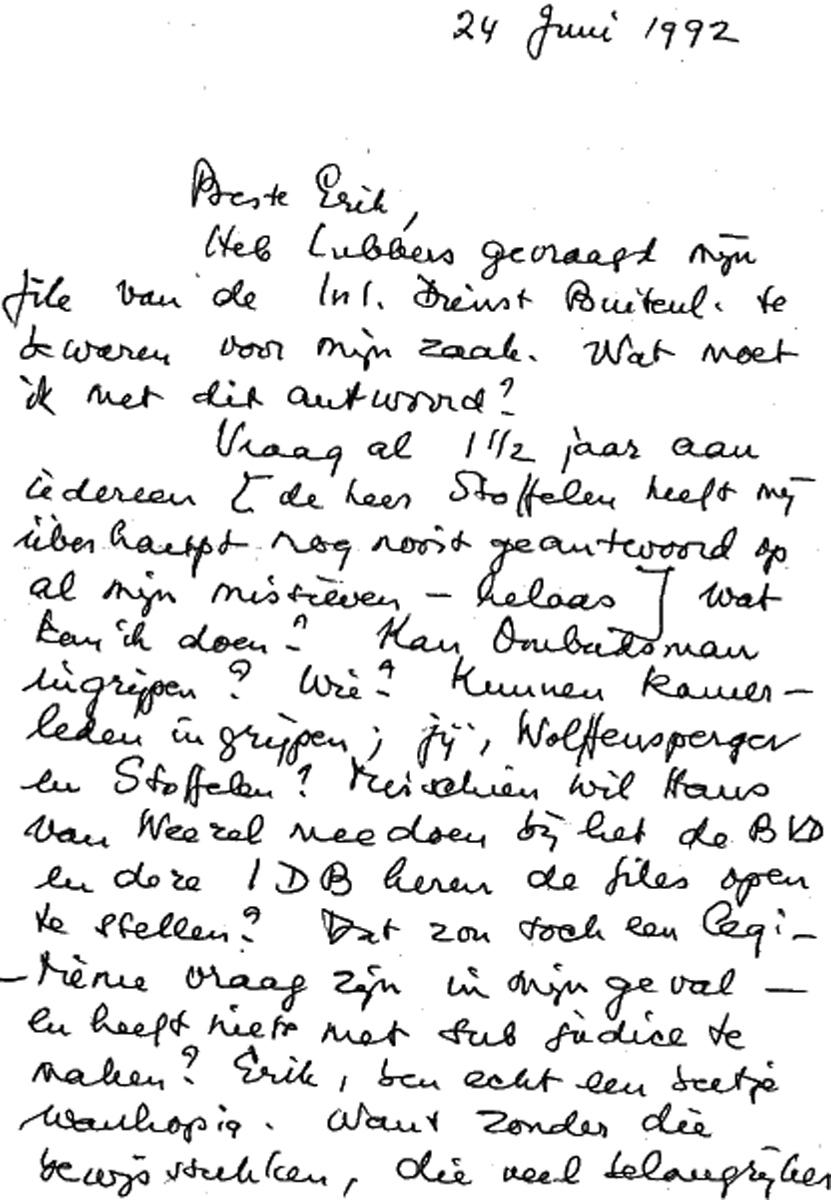 24 Juni 1992
Beste Erik,
Heb Lubbers gevraagd mijn
file van de Inl. Dienst Buitenl. te
bewaren voor mijn zaak. Wat moet
ik met dit antwoord?
Vraag al 1 1/2 jaar aan
iedereen [de heer Stoffelen heeft mij
überhaupt nog nooit geantwoord op
al mijn missieven - helaas] wat
kan ik doen? Kan Ombudsman
ingrijpen? Wie? Kunnen kamer-
leden ingrijpen; jij, Wolffensperger
en Stoffelen? Misschien wil Hans
van Weezel meedoen bij het de BVD
en deze IDB heren de files open
te stellen? Dat zou toch een legi-
-tieme vraag zijn in mijn geval -
en heeft niets met sub judice te
maken? Erik, ben echt een beetje
wanhopig. Want zonder die
bewijsstukken, die veel belangrijker